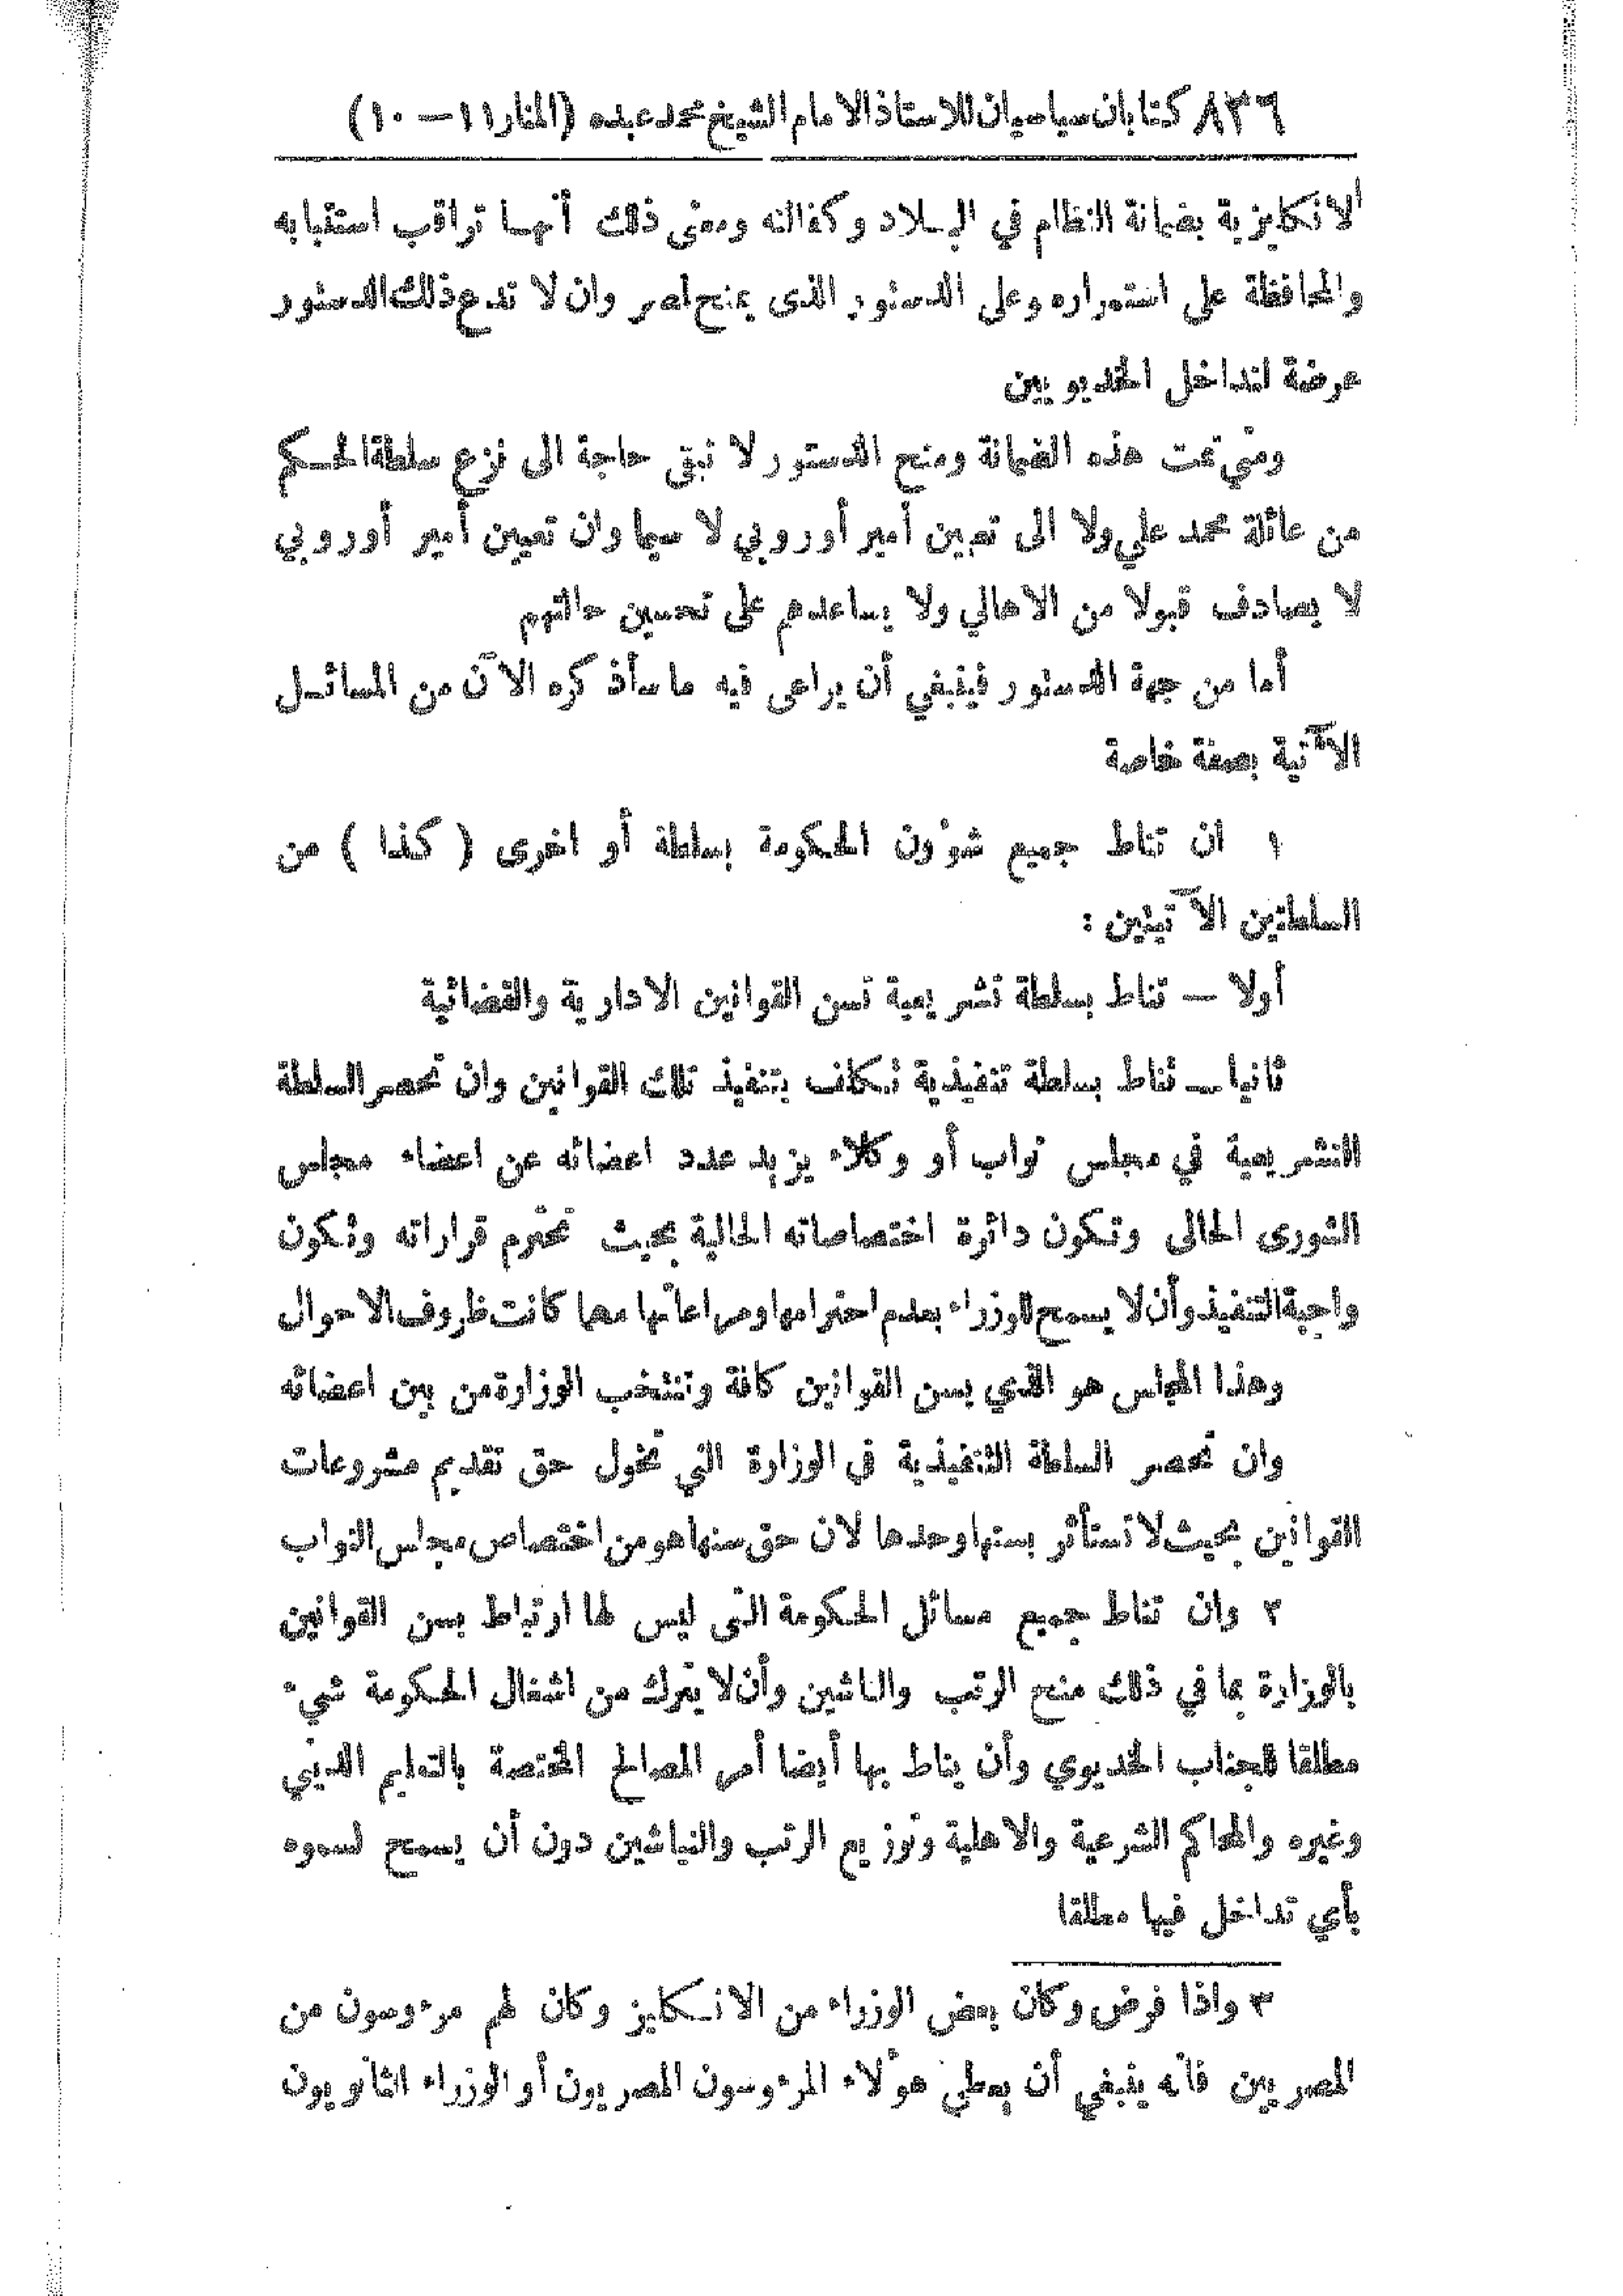 ٨٣٦ كتابان سياسيان للاستاذ الامام الشيخ محمد عبده (المنار ١١ – ١٠)
الانكليزية بضمانة النظام في البلاد وكفالته ومعنى ذلك أنها تراقب استتبابه
والمحافظة على استمراره وعلى الدستور الذى يمنح لمصر وان لا تدع ذلك الدستور
عرضة لتداخل الخديويين
ومتى تمت هذه الضمانة ومنح الدستور لا تبقى حاجة الى نزع سلطة الحكم
من عائلة محمد علي ولا الى تعيين أمير أوروبي لا سيما وان تعيين أمير أوروبي
لا يصادف قبولا من الاهالي ولا يساعدهم على تحسين حالتهم
أما من جهة الدستور فينبغي أن يراعى فيه ما سأذكره الآن من المسائل
الآتية بصفة خاصة
١ ان تناط جميع شؤون الحكومة بسلطة أو اخرى ( كذا ) من
السلطتين الآتيتين :
أولا – تناط بسلطة تشريعية تسن القوانين الادارية والقضائية
ثانيا – تناط بسلطة تنفيذية تكلف بتنفيذ تلك القوانين وان تحصر السلطة
التشريعية في مجلس نواب أو وكلاء يزيد عدد اعضائه عن اعضاء مجلس
الشورى الحالى وتكون دائرة اختصاصاته الحالية بحيث تحترم قراراته وتكون
واجبة التنفيذ وأن لا يسمح للوزراء بعدم احترامها ومراعاتها مهما كانت ظروف الاحوال
وهذا المجلس هو الذي يسن القوانين كافة وتنتخب الوزارة من بين اعضائه
وان تحصر السلطة التنفيذية في الوزارة التي تخول حق تقديم مشروعات
القوانين بحيث لا تستأثر بسنها وحدها لان حق سنها هو من اختصاص مجلس النواب
٢ وان تناط جميع مسائل الحكومة التى ليس لها ارتباط بسن القوانين
بالوزارة بما في ذلك منح الرتب والناشين وأن لا يترك من اشغال الحكومة شيء
مطلقا للجناب الخديوي وأن يناط بها أيضا أمر المصالح المختصة بالتعليم الديني
وغيره والمحاكم الشرعية والاهلية وتوزيع الرتب والنياشين دون أن يسمح لسموه
بأي تداخل فيها مطلقا
٣ واذا فرض وكان بعض الوزراء من الانكليز وكان لهم مرءوسون من
المصريين فانه ينبغي أن يعطى هؤلاء المرءوسون المصريون أو الوزراء الثانويون